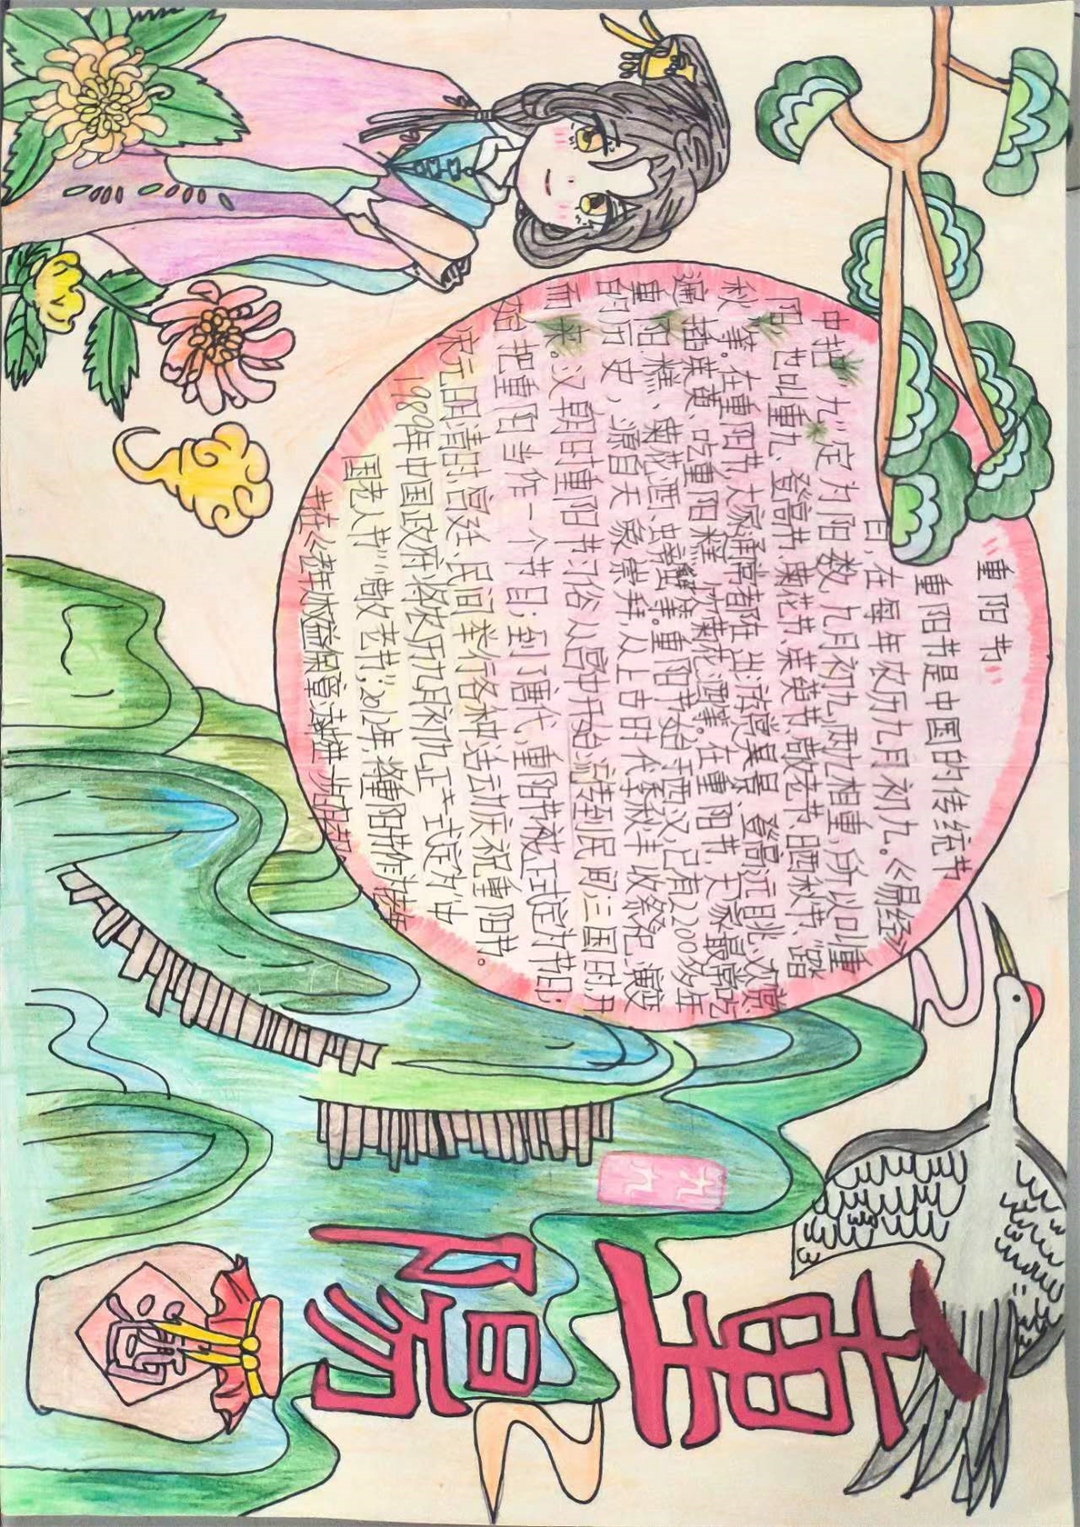 重阳
九九
酒
"重阳节"
重阳节是中国的传统节
日,在每年农历九月初九。《易经》
中把"九"定为阳数,九月初九,两九相重,所以叫重
阳,也叫重九、登高节、菊花节、茱萸节、敬老节、晒秋节、"踏
秋"等。在重阳节,大家通常都在出游赏景、登高远眺、欣赏
遍插茱萸、吃重阳糕、饮菊花酒等。在重阳节,大家最常吃
重阳糕、菊花酒、螃蟹等。重阳节始于西汉,已有2200多年
的历史,源自天象崇拜,从上古时代季秋丰收祭祀演变
而来。汉朝时重阳节习俗从宫中开始流转到民间;三国时开
始把重阳当作一个节日;到了唐代,重阳节被正式定为节日;
宋元明清时,宫廷、民间举行各种活动庆祝重阳节。
1989年中国政府将农历九月初九正式定为"中
国老人节""敬老节";2012年将重阳节作为老年